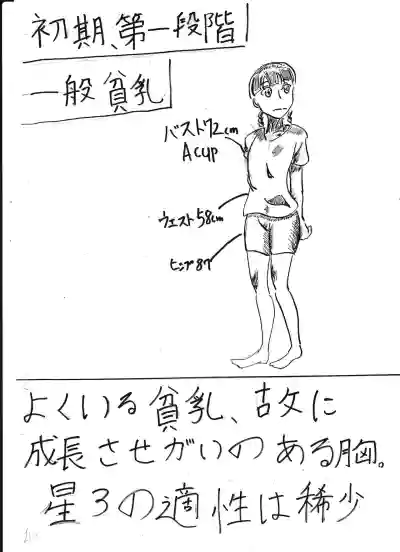 初期、第一段階
一般貧乳
バスト72cm
Acup
ウェスト58cm
ヒップ87
よくいる貧乳、故に
成長させがいのある胸。
星3の適性は稀少